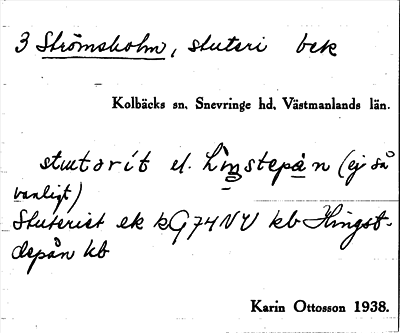 3 Strömsholm, stuteri bek
Kolbäcks sn, Snevringe hd, Västmanlands län.
stutorit el. hiŋstepån (ej så
vanligt)
Stuteriet ek kG74NV kb Hingst-
depån kb
Karin Ottosson 1938.